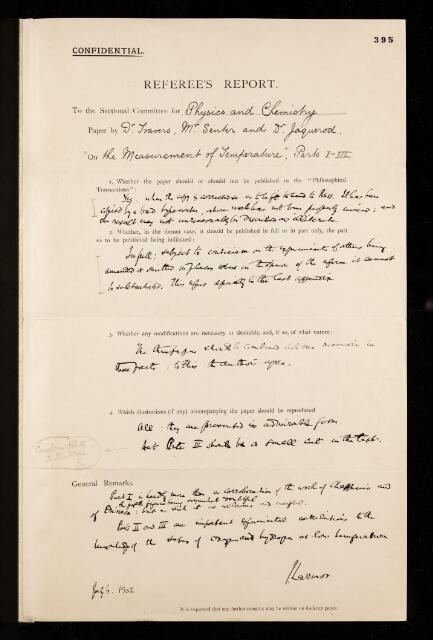 395
CONFIDENTIAL.
REFEREE'S REPORT.
To the Sectional Committee for Physics and Chemistry
Paper by Dr Travers, Mr Senter and Dr Jaquerod.
"On the Measurement of Temperature", Parts I–III
1. Whether the paper should or should not be published in the "Philosophical
Transactions":
Yes; when the copy is corrected so as to be fit to send to Press. It has been
copied by a bad typewriter, whose work has not been properly revised; and
in result may not unreasonably be described as illiterate.
2. Whether, in the former case, it should be published in full or in part only, the part
so to be published being indicated:
In full: subject to criticisms on the experiments of others being
amended or omitted in places where in the opinion of the referee it cannot
be substantiated. This refers especially to the last appendix
3. Whether any modifications are necessary or desirable, and, if so, of what nature:
The three papers should be combined into one memoir in
three parts: to this the authors agree.
4. Which illustrations (if any) accompanying the paper should be reproduced
All: they are presented in admirable form.
but Plate III should be a small cut in the text.
General Remarks.
Part I is hardly more than a corroboration of the work of Chappuis and
of
: but as such it is welcome and useful.
Parts II and III are important experimental contributions to the
knowledge of the states of oxygen and hydrogen at low temperatures
J Larmor
1902
It is requested that any further remarks may be written on foolscap paper.